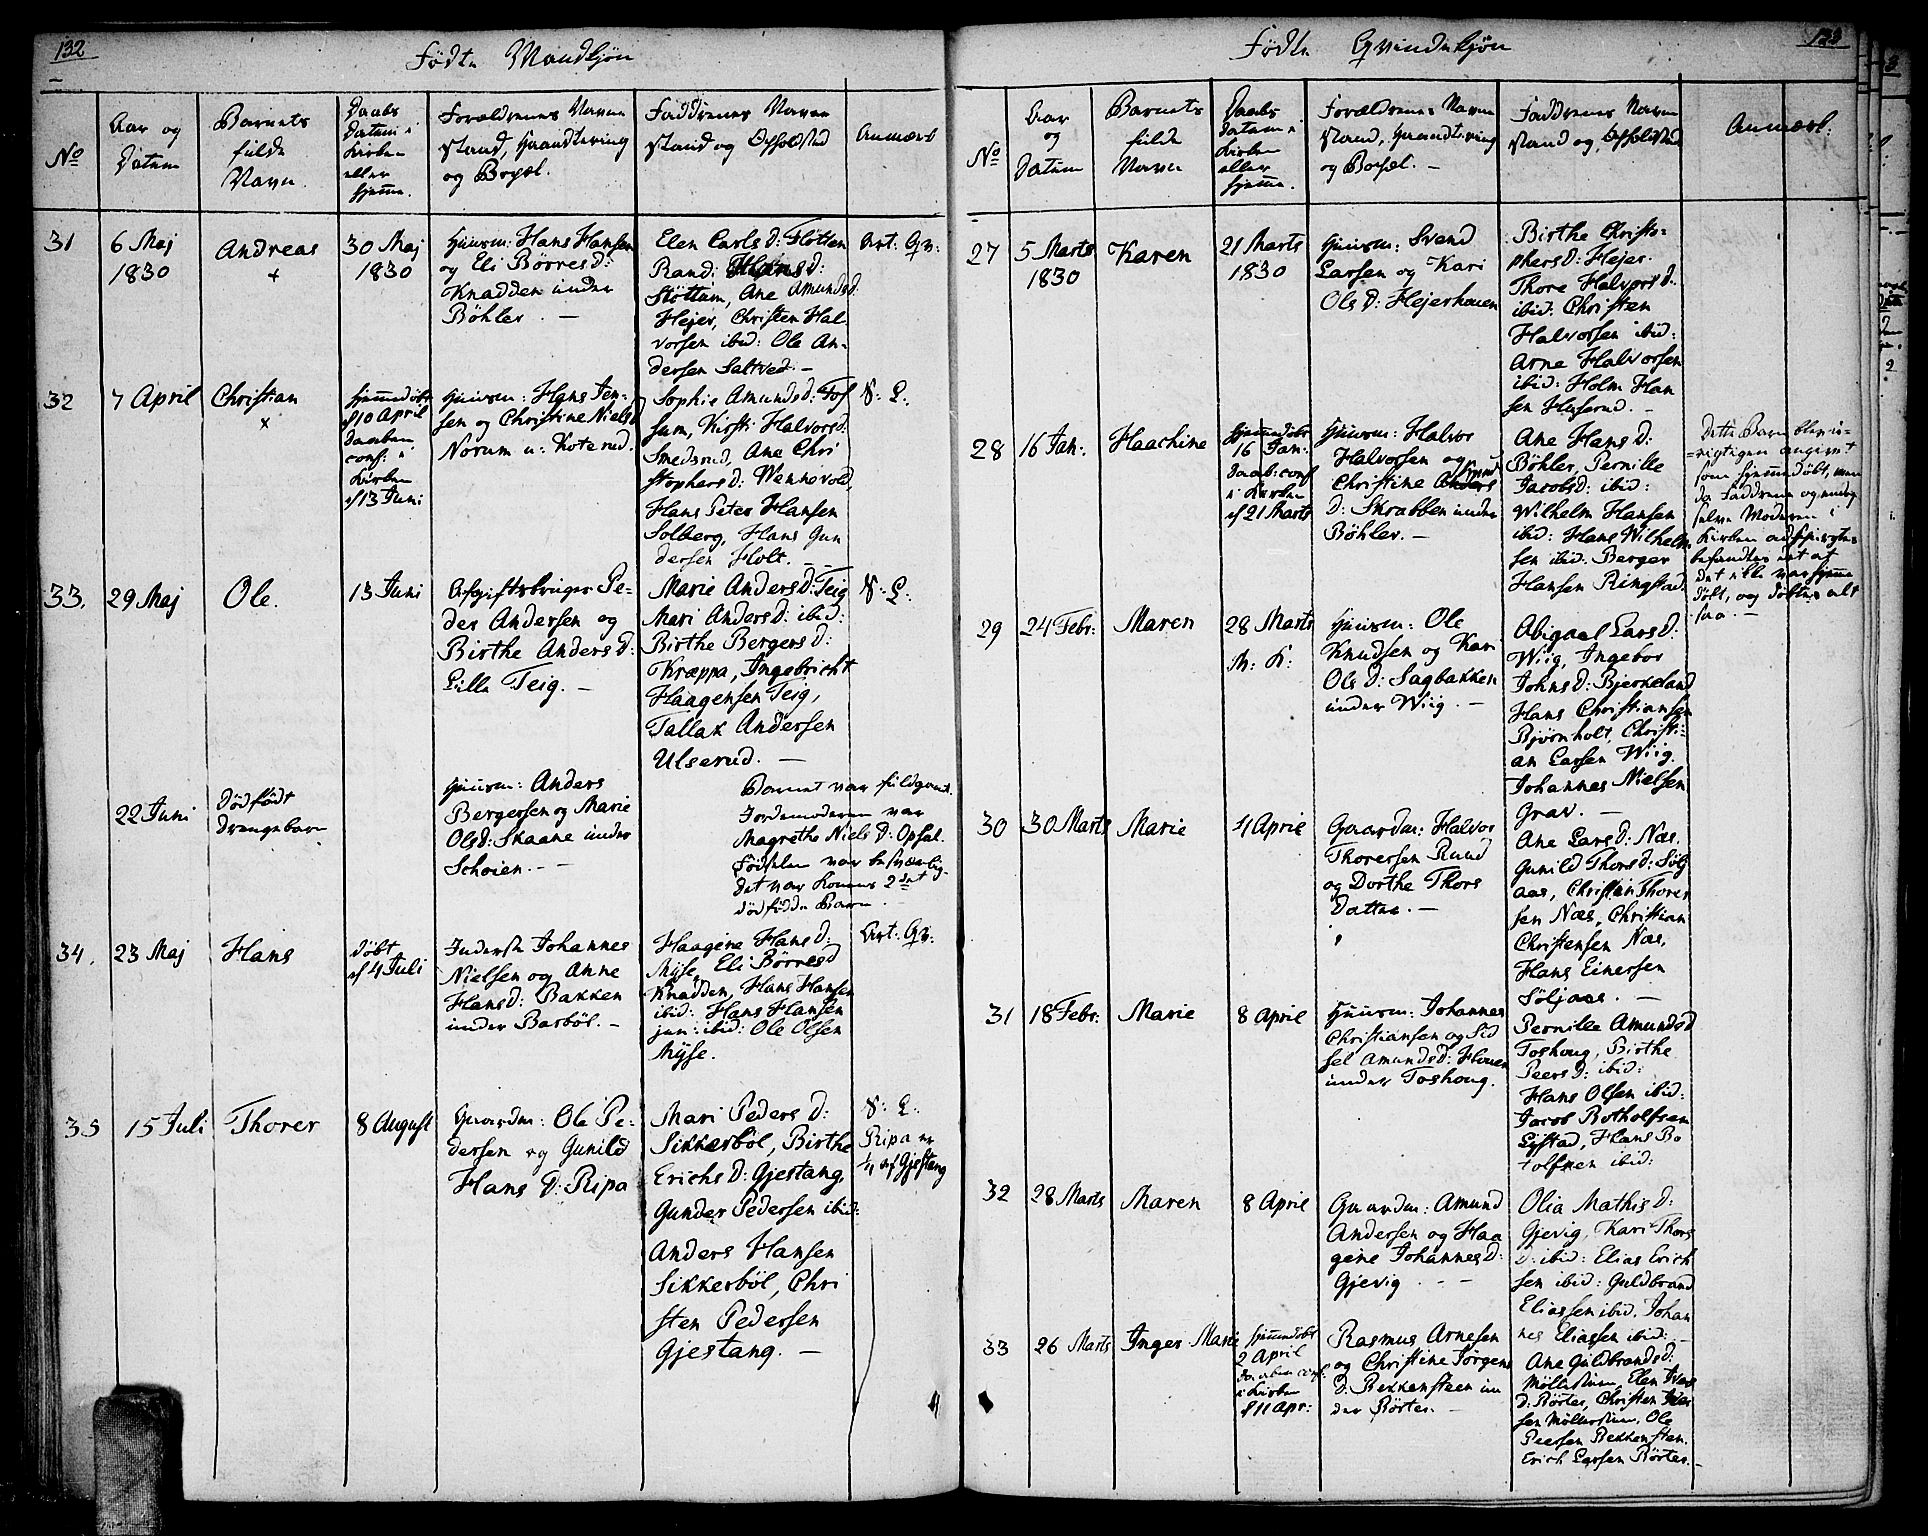 132
Födte Mandkjön
No
Aar og
Datum
Barnets
fulde
Navn.
Daabs
Datum i
Kirken
eller
hjemme.
Forældrenes Navne
Stand, Haandtering
og Bopæl.
Faddernes Navne
Stand og Opholdsted
Anmærk
31
6 Maj
1830
Andreas
+
30 Maj
1830
Huusm: Hans Hansen
og Eli Börresd:
Knadden under
Böhler. —
Elen Carlsd: Fløtten
Rand: Hansd:
Stöttum, Ane Amundsd
Hejer, Christen Hal-
vorsen ibid: Ole An-
dersen Saltved. —
Art. Qv:
32
7 April
Christian
x
hjemmedöbt
d 10 April
Daaben
conf: i
Kirken
d 13 Juni
Huusm: Hans Jen-
sen og Christine Nielsd
Norum u: Koterud.
Sophie Amundsd: Fos
sum, Kirsti Halvorsd.
Smedsrud, Ane Chri
stophersd: Wennevold,
Hans Peter Hansen
Solberg, Hans Gun
dersen Holt. —
N. L.
33.
29 Maj
Ole.
13 Juni
Afgiftsbruger Pe-
der Andersen og
Birthe Andersd:
Lille Teig. —
Marie Andersd: Teig
Mari Andersd: ibid:
Birthe Bergersd:
Kræppa, Ingebricht
Haagensen Teig,
Tallak Andersen
Ulserud. —
N. L.
22 Juni
Dödfödt
Drengebarn
Huusm: Anders
Bergersen og Marie
Olsd: Skaane under
Schoien. —
Barnet var fuldgaaet.
Jordemoderen var
Magrethe Nielsd: Opsal.
Födselen var besværlig.
Det var Konens 2det
dödfödde Barn.
34.
23 Maj
Hans
döbt
d 4 Juli
Inderste Johannes
Nielsen og Anne
Hansd: Bakken
under Basböl. —
Haagine Hansd:
Myse, Eli Börresd
Knadden, Hans Hansen
ibid: Hans Hansen
jun: ibid: Ole Olsen
Myse.
Art: Qv:
35
15 Juli
Thorer
8 August
Gaardm: Ole Pe-
dersen og Gunild
Hansd: Ripa
Mari Pedersd:
Sikkerböl, Birthe
Erichsd: Gjestang,
Gunder Pedersen ibid:
Anders Hansen
Sikkerböl, Chri
sten Pedersen
Gjestang. —
N. L.
Ripa er
1/4 af Gjestang
133
Födte Qvindekjön
No
Aar
og
Datum
Barnets
fulde
Navn
Daabs
Datum i
Kirken
eller
hjemme.
Forældrenes Navne
Stand, Haandtering
og Bopæl. —
Faddernes Navne
Stand og Opholdsted
Anmærk:
27
5 Marts
1830
Karen
21 Marts
1830
Huusm: Svend
Larsen og Kari
Olsd: Hejerhauen
Birthe Christo-
phersd: Hejer.
Thore Halvorsd:
ibid: Christen
Halvorsen ibid:
Arne Halvorsen
ibid: Holm Han
sen Huserud. —
28
16 Jan:
Haachine
hjemmedöbt
16 Jan:
Daab: conf
i Kirken
d 21 Marts
Huusm: Halvor
Halvorsen og
Christine Anders
d: Skrabben under
Böhler. —
Ane Hansd:
Böhler, Pernille
Jacobsd: ibid:
Wilhelm Hansen
ibid: Hans Wilhelm
sen ibid. Berger
Hansen Ringstad.
Dette Barn blev u-
rigtigen angivet
som hjemmedöbt, men
da Fadderne og endog
selve Moderen i
Kirken
befandtes det at
det ikke var hjemme
döbt, og döbtes alt
saa. —
29
24 Febr:
Maren
28 Marts
M: K:
Huusm: Ole
Knudsen og Kari
Olsd: Sagbakken
under Wiig. —
Abigael Larsd:
Wiig, Ingebor
Johnsd: Bjerkeland
Hans Christiansen
Bjørnholt, Christi-
an Larsen Wiig.
Johannes Nielsen
Grav. —
30
30 Marts
Marie
4 April
Gaardm: Halvor
Thorersen Ruud
og Dorthe Thors
Datter. —
Ane Larsd: Næs.
Gunild Thorsd: Sölj
aas, Christen Thorer
sen Næs, Christian
Christensen Næs,
Hans Einersen
Söljaas. —
31
18 Febr:
Marie
8 April
Huusm: Johannes
Christiansen og Sid
sel Amundsd: Hauen
under Toshoug.
Pernille Amundsd
Toshoug, Birthe
Peersd: ibid:
Hans Olsen ibid:
Jacob Botholfsen
Lystad, Hans Bo
tolfsen ibid:
32
28 Marts
Maren
8 April
Gaardm: Amund
Andersen og Haa
gine Johannesd:
Gjevig. — —
Olia Mathisd:
Gjevig, Kari Thors
d: ibid: Elias Erich
sen ibid: Guldbrand
Eliassen ibid. Johan
nes Eliassen ibid: —
33
26 Marts
Inger Marie
hjemmedöbt
2 April
Daaben conf:
i Kirken
d 11 Apr:
Rasmus Arnesen
og Christine Jörgens
d: Bekkensteen un
der Rörter. —
Ane Guldbrandsd:
Möllerstuen, Elen Iver
d: Rörter, Christen Iver
sen Möllerstuen, Ole
Peersen Bekkensten.
Erich Larsen Rörter. —